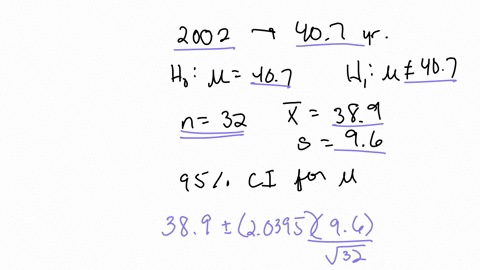 2002 → 40.7 yr.
H₀: μ = 40.7 H₁: μ ≠ 40.7
n = 32 x̄ = 38.9
s = 9.6
95% CI for μ
38.9 ± (2.0395)(9.6)
√32